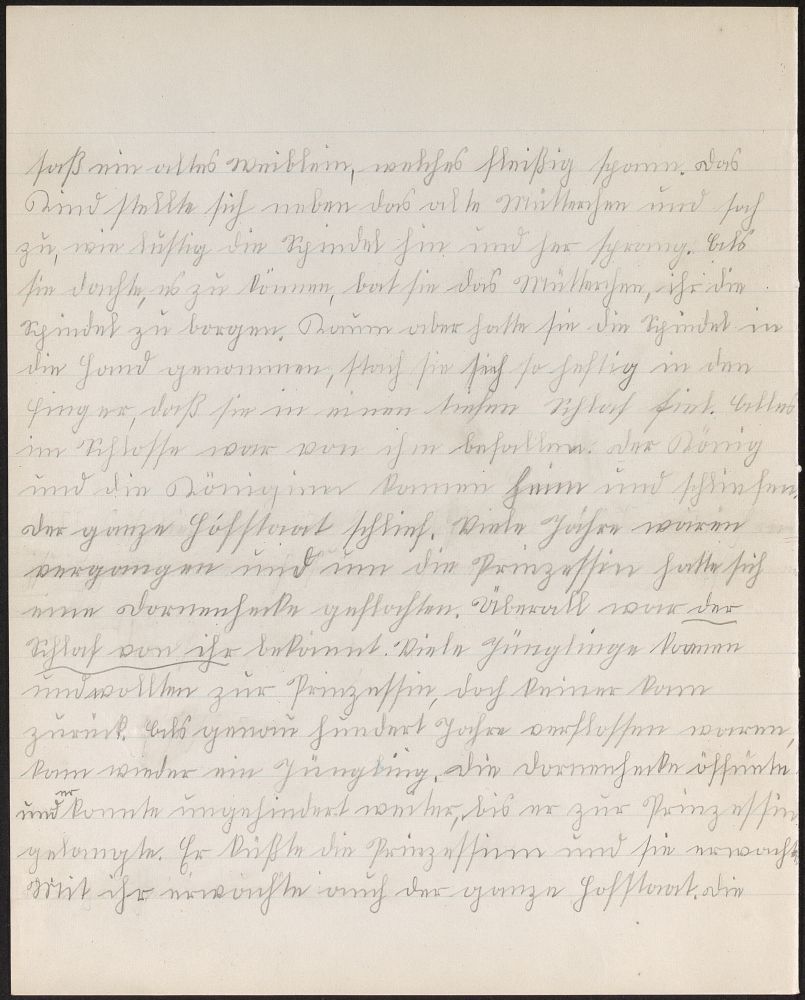 saß ein altes Weiblein, welches fleißig spann. Das
Kind stellte sich neben das alte Mütterchen und sah
zu, wie lustig die Spindel hin und her sprang. Als
sie dachte, es zu können, bat sie das Mütterchen, ihr die
Spindel zu borgen. Kaum aber hatte sie die Spindel in
die Hand genommen, stach sie sich so heftig in den
Finger, daß sie in einen tiefen Schlaf fiel. Alles
im Schlosse war von ihm befallen. Der König
und die Königinnen kamen heim und schliefen.
Der ganze Hofstaat schlief. Viele Jahre waren
vergangen und um die Prinzessin hatte sich
eine Dornenhecke geflochten. Überall war der
Schlaf von ihr bekannt. Viele Jünglinge kamen
und wollten zur Prinzessin, doch keiner kam
zurück. Als genau hundert Jahre verflossen waren,
kam wieder ein Jüngling. Die Dornenhecke öffnete
und er konnte ungehindert weiter, bis er zur Prinzessin
gelangte. Er küßte die Prinzessin und sie erwachte
Mit ihr erwachte auch der ganze Hofstaat. Die